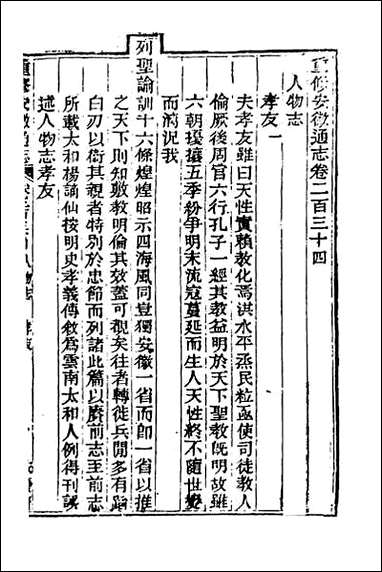 重修安徽通志卷二百三十四
人物志
孝友一
夫孝友雖曰天性實賴教化焉洪水平烝民粒亟使司徒教人
倫厥後周官六行孔子一經其教益明於天下聖教旣明故雖
六朝擾攘五季紛爭明末流寇蔓延而生人天性終不隨世變
而漓況我
列聖諭訓十六條煌煌昭示四海風同豈獨安徽一省而卽一省以推
之天下則知敦教明倫其效蓋可覩矣往者轉徙兵間多有蹈
白刃以衞其親者特別於忠節而列諸此篇以賡前志至前志
所載太和楊謫仙按明史孝義傳敘爲雲南太和人例得刊誤
述人物志孝友